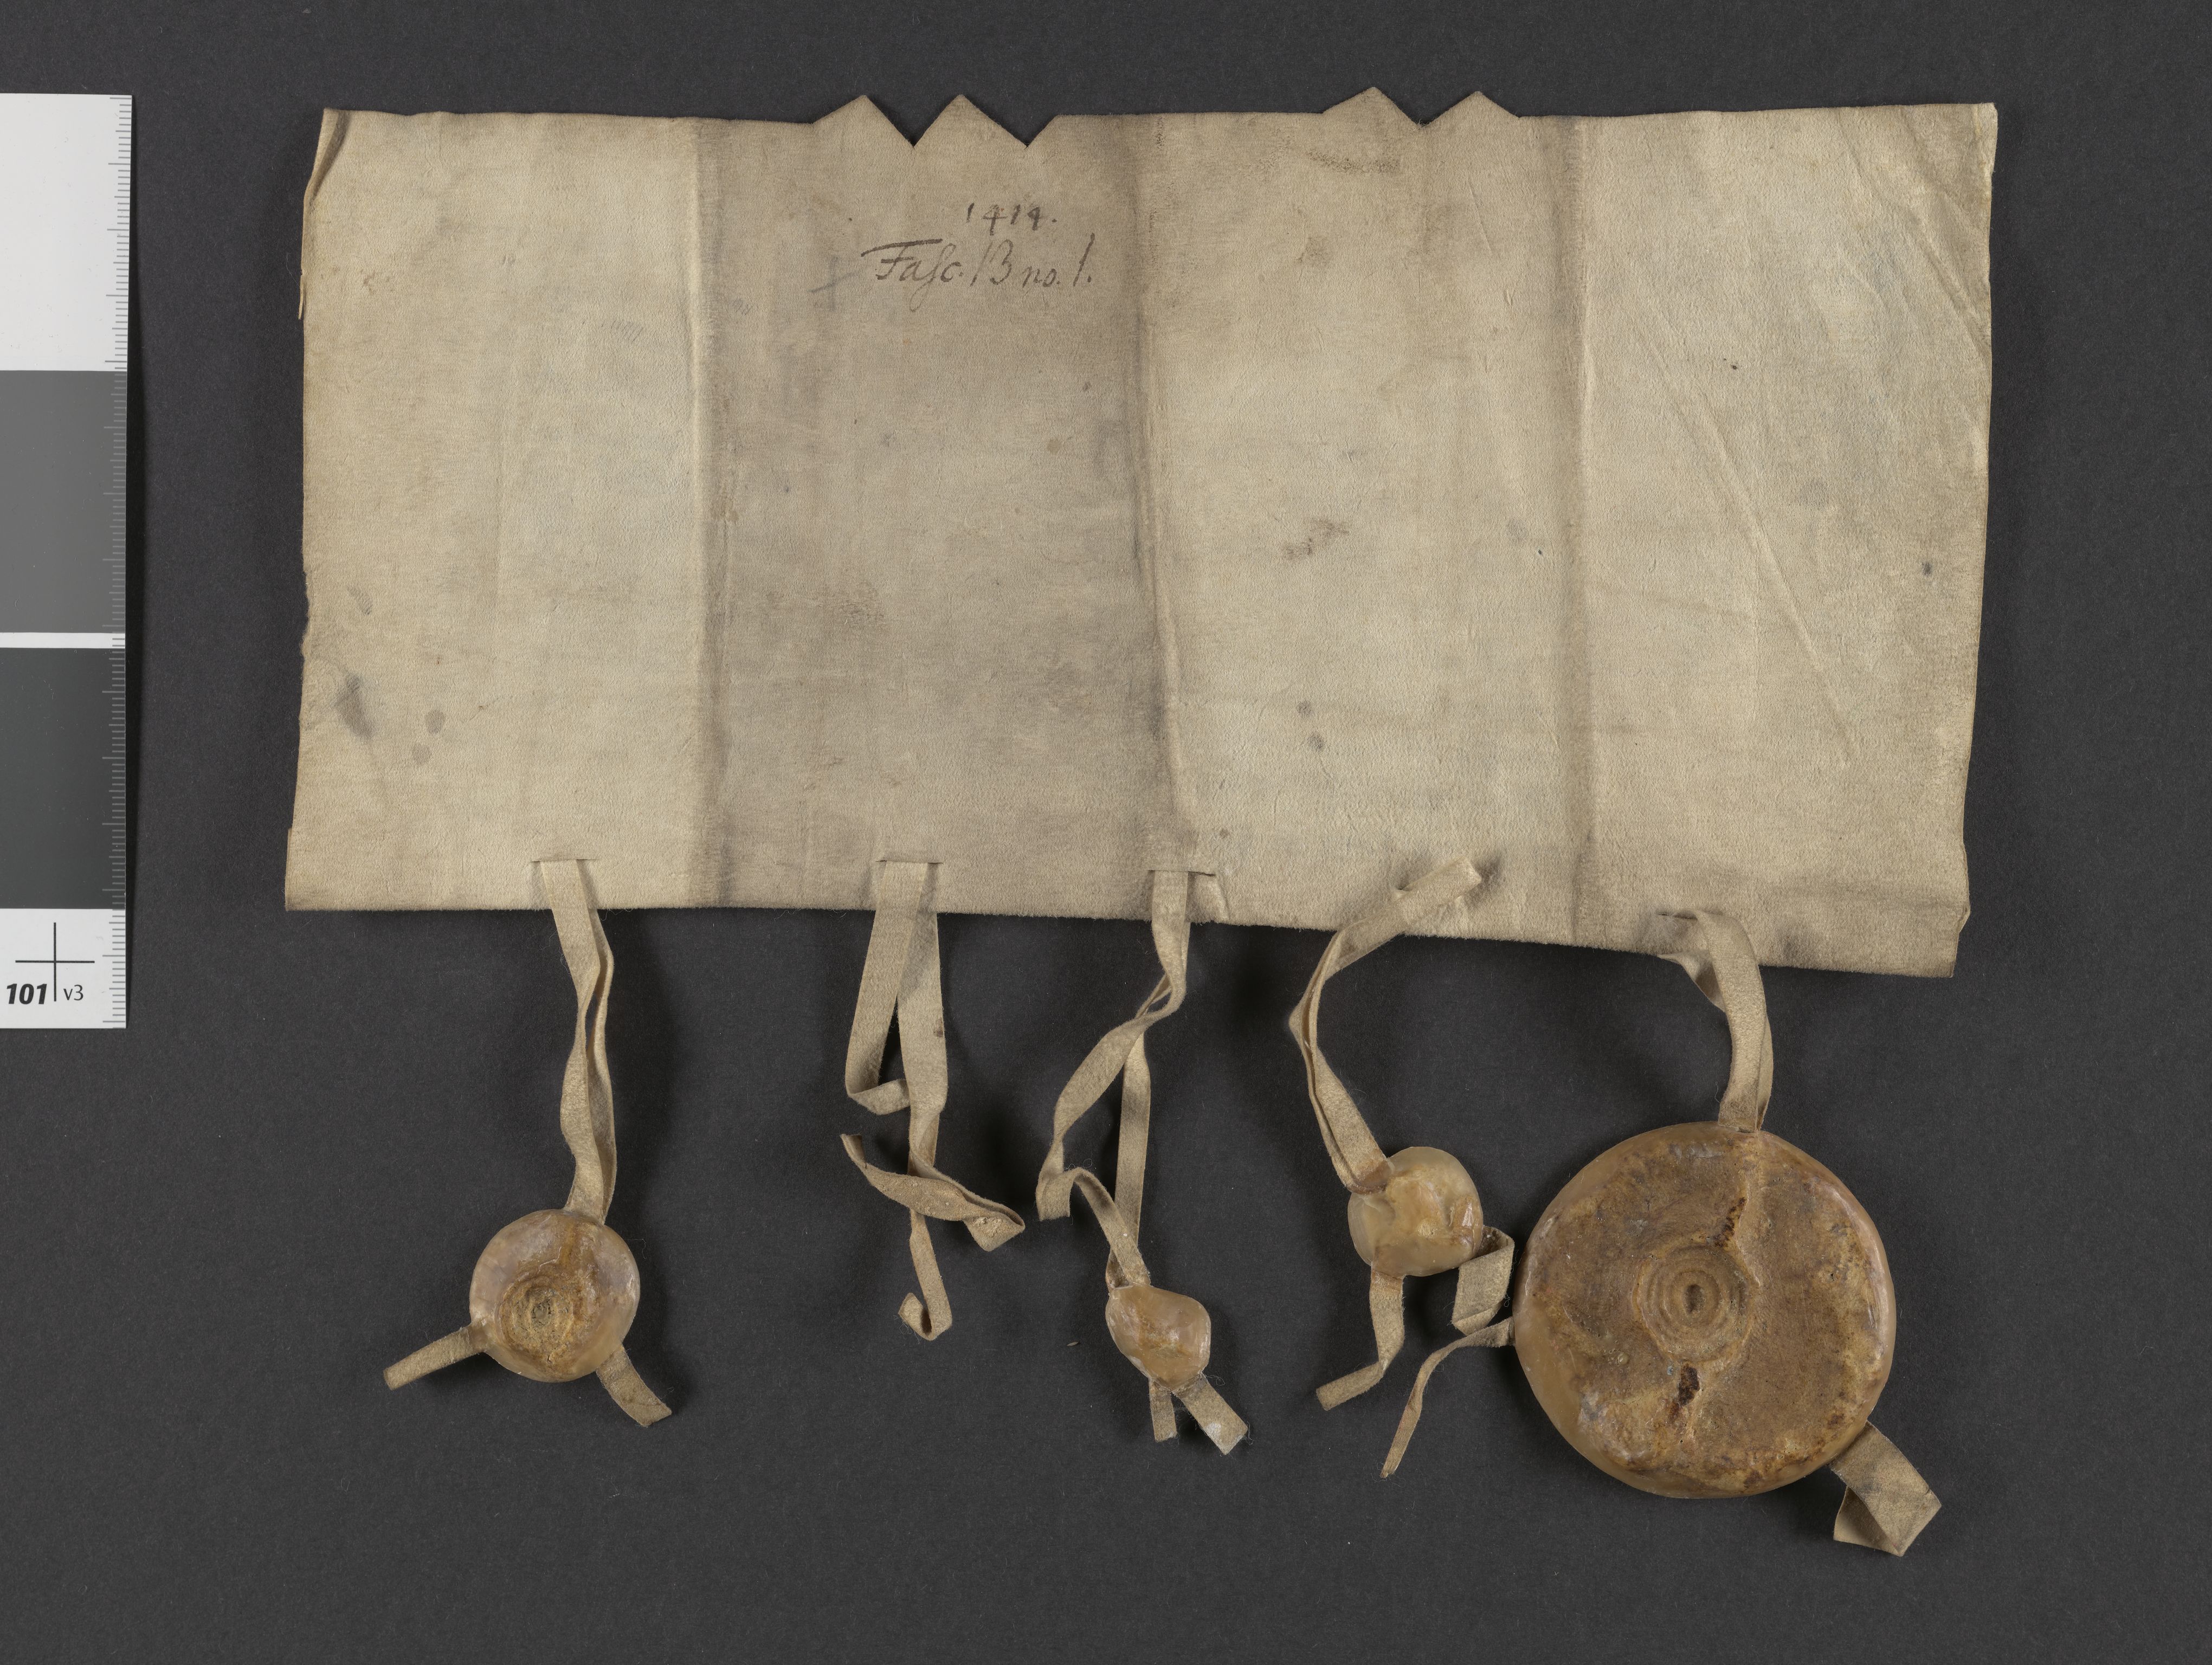 1414.
Fasc. 13 no. 1.
101 v3